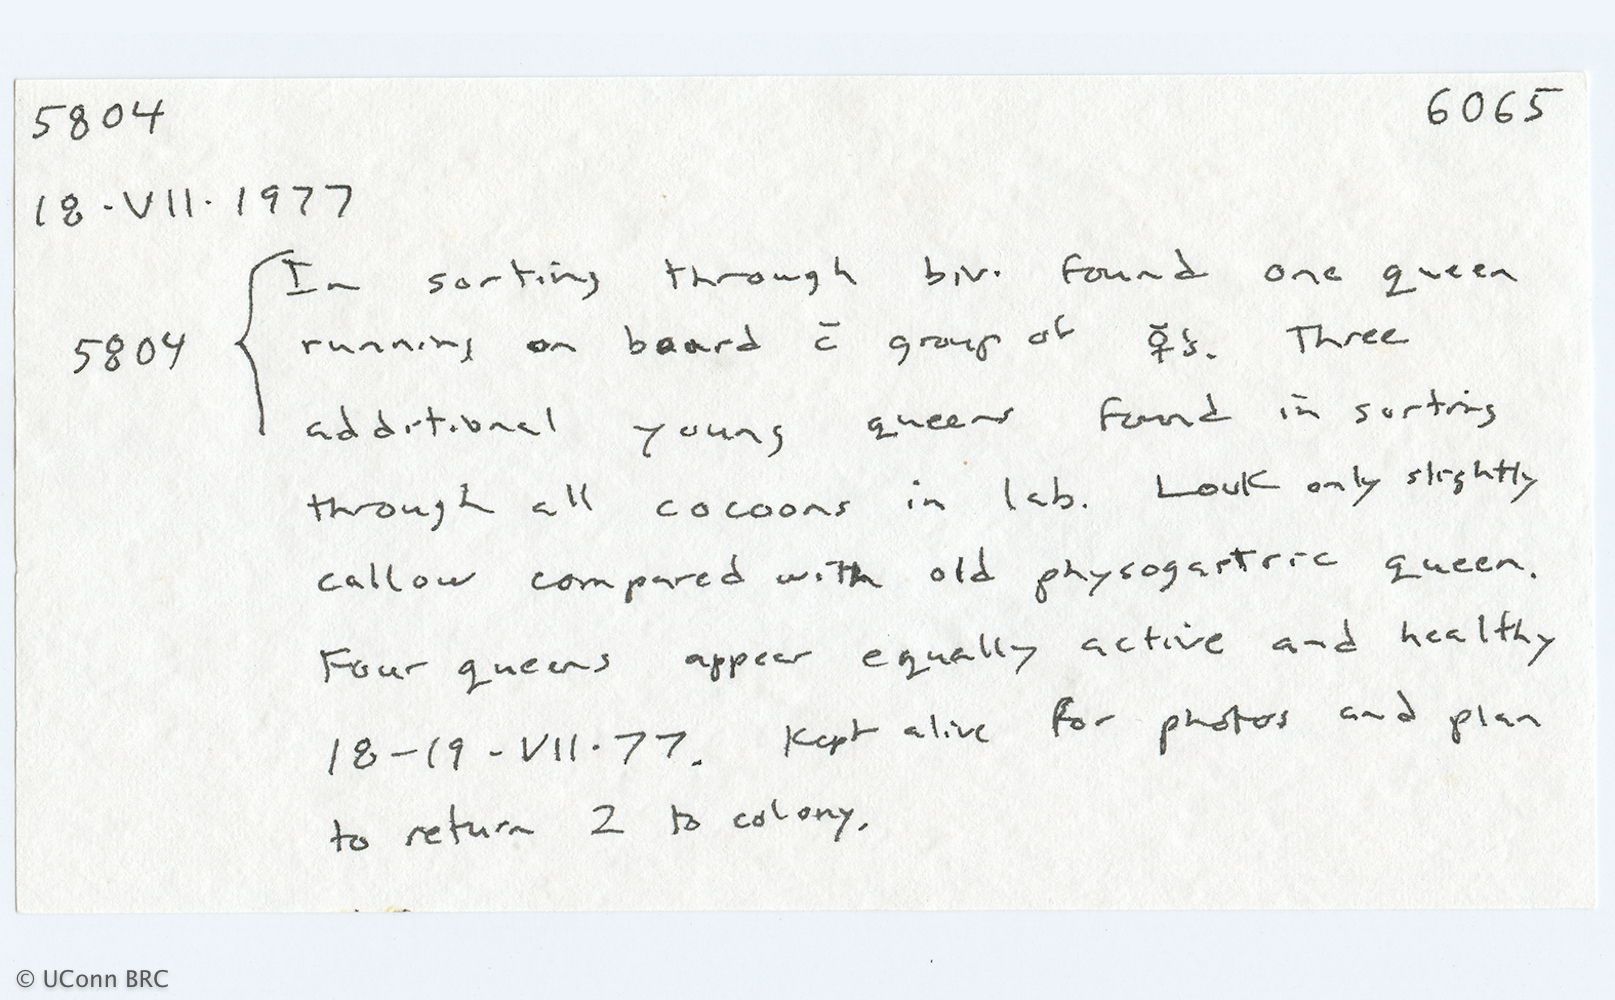 5804 6065
18-VII-1977
In sorting through biv. found one queen
5804 running on board c̄ group of ☿'s. Three
additional young queens found in sorting
through all cocoons in lab. Look only slightly
callow compared with old physogastric queen.
Four queens appear equally active and healthy
18-19-VII-77. Kept alive for photos and plan
to return 2 to colony.
© UConn BRC